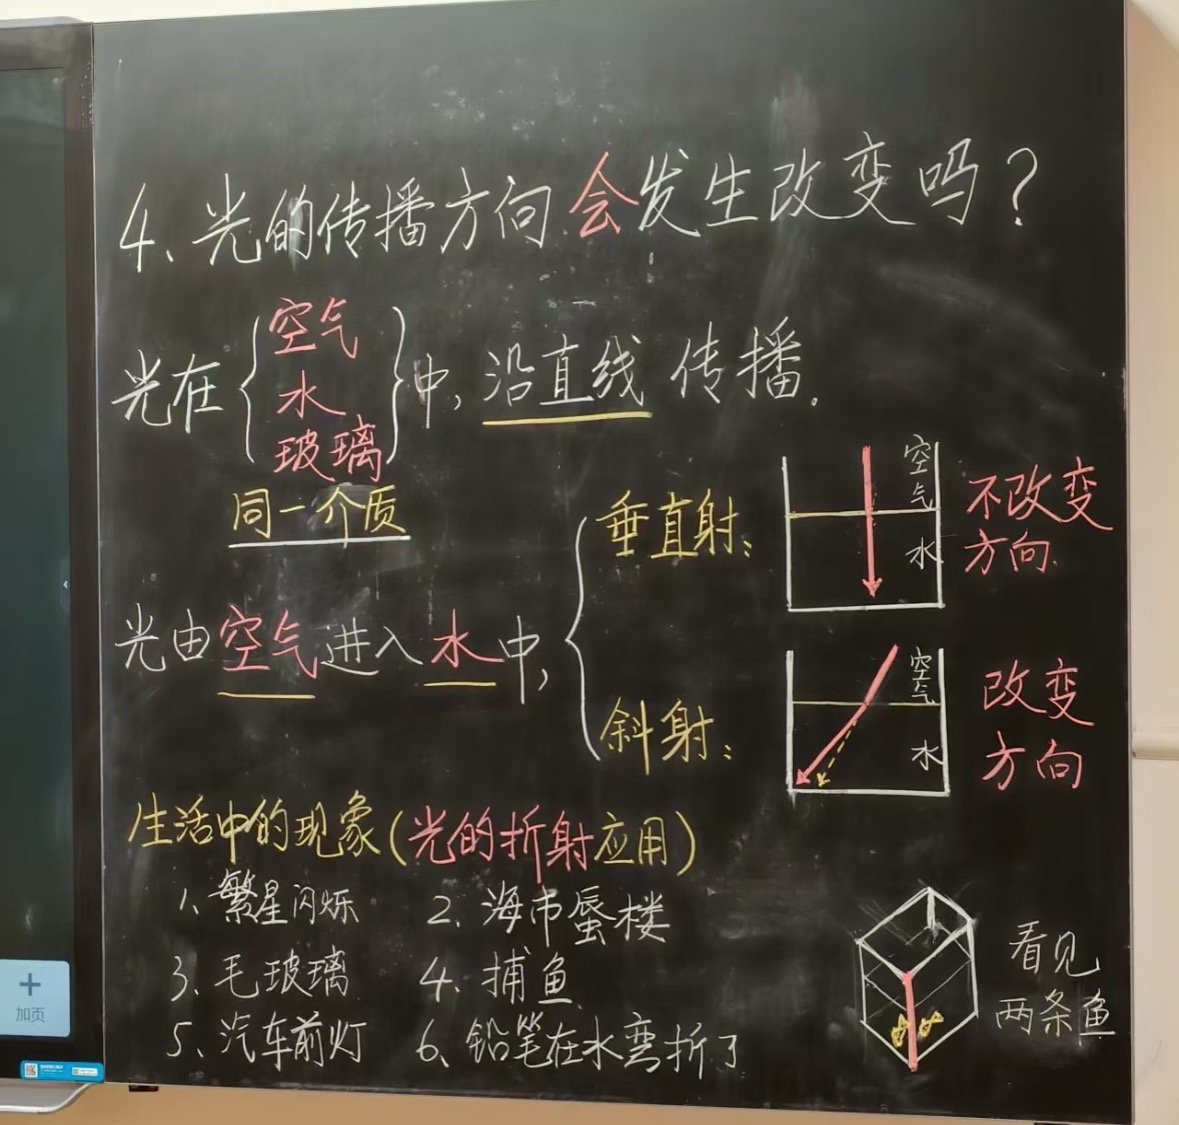 4、光的传播方向会发生改变吗？
光在{空气 水 玻璃}中,沿直线传播.
同一介质
光由空气进入水中,
垂直射：
空气
水
不改变
方向.
斜射：
空气
水
改变
方向
生活中的现象(光的折射应用)
1、繁星闪烁 2、海市蜃楼
3、毛玻璃 4、捕鱼
5、汽车前灯 6、铅笔在水弯折了
看见
两条鱼
加页